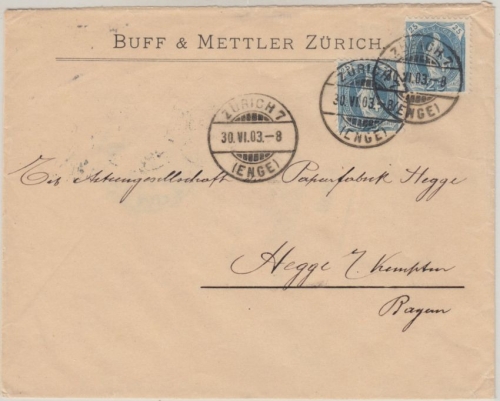 BUFF & METTLER ZÜRICH.
ZÜRICH 7
30.VI.03.–8
(ENGE)
ZÜRICH 7
30.VI.03.–8
(ENGE)
ZÜRICH 7
30.VI.03.–8
(ENGE)
25
Actiengesellschaft Papierfabrik Hegge
Hegge b. Kempten
Bayern